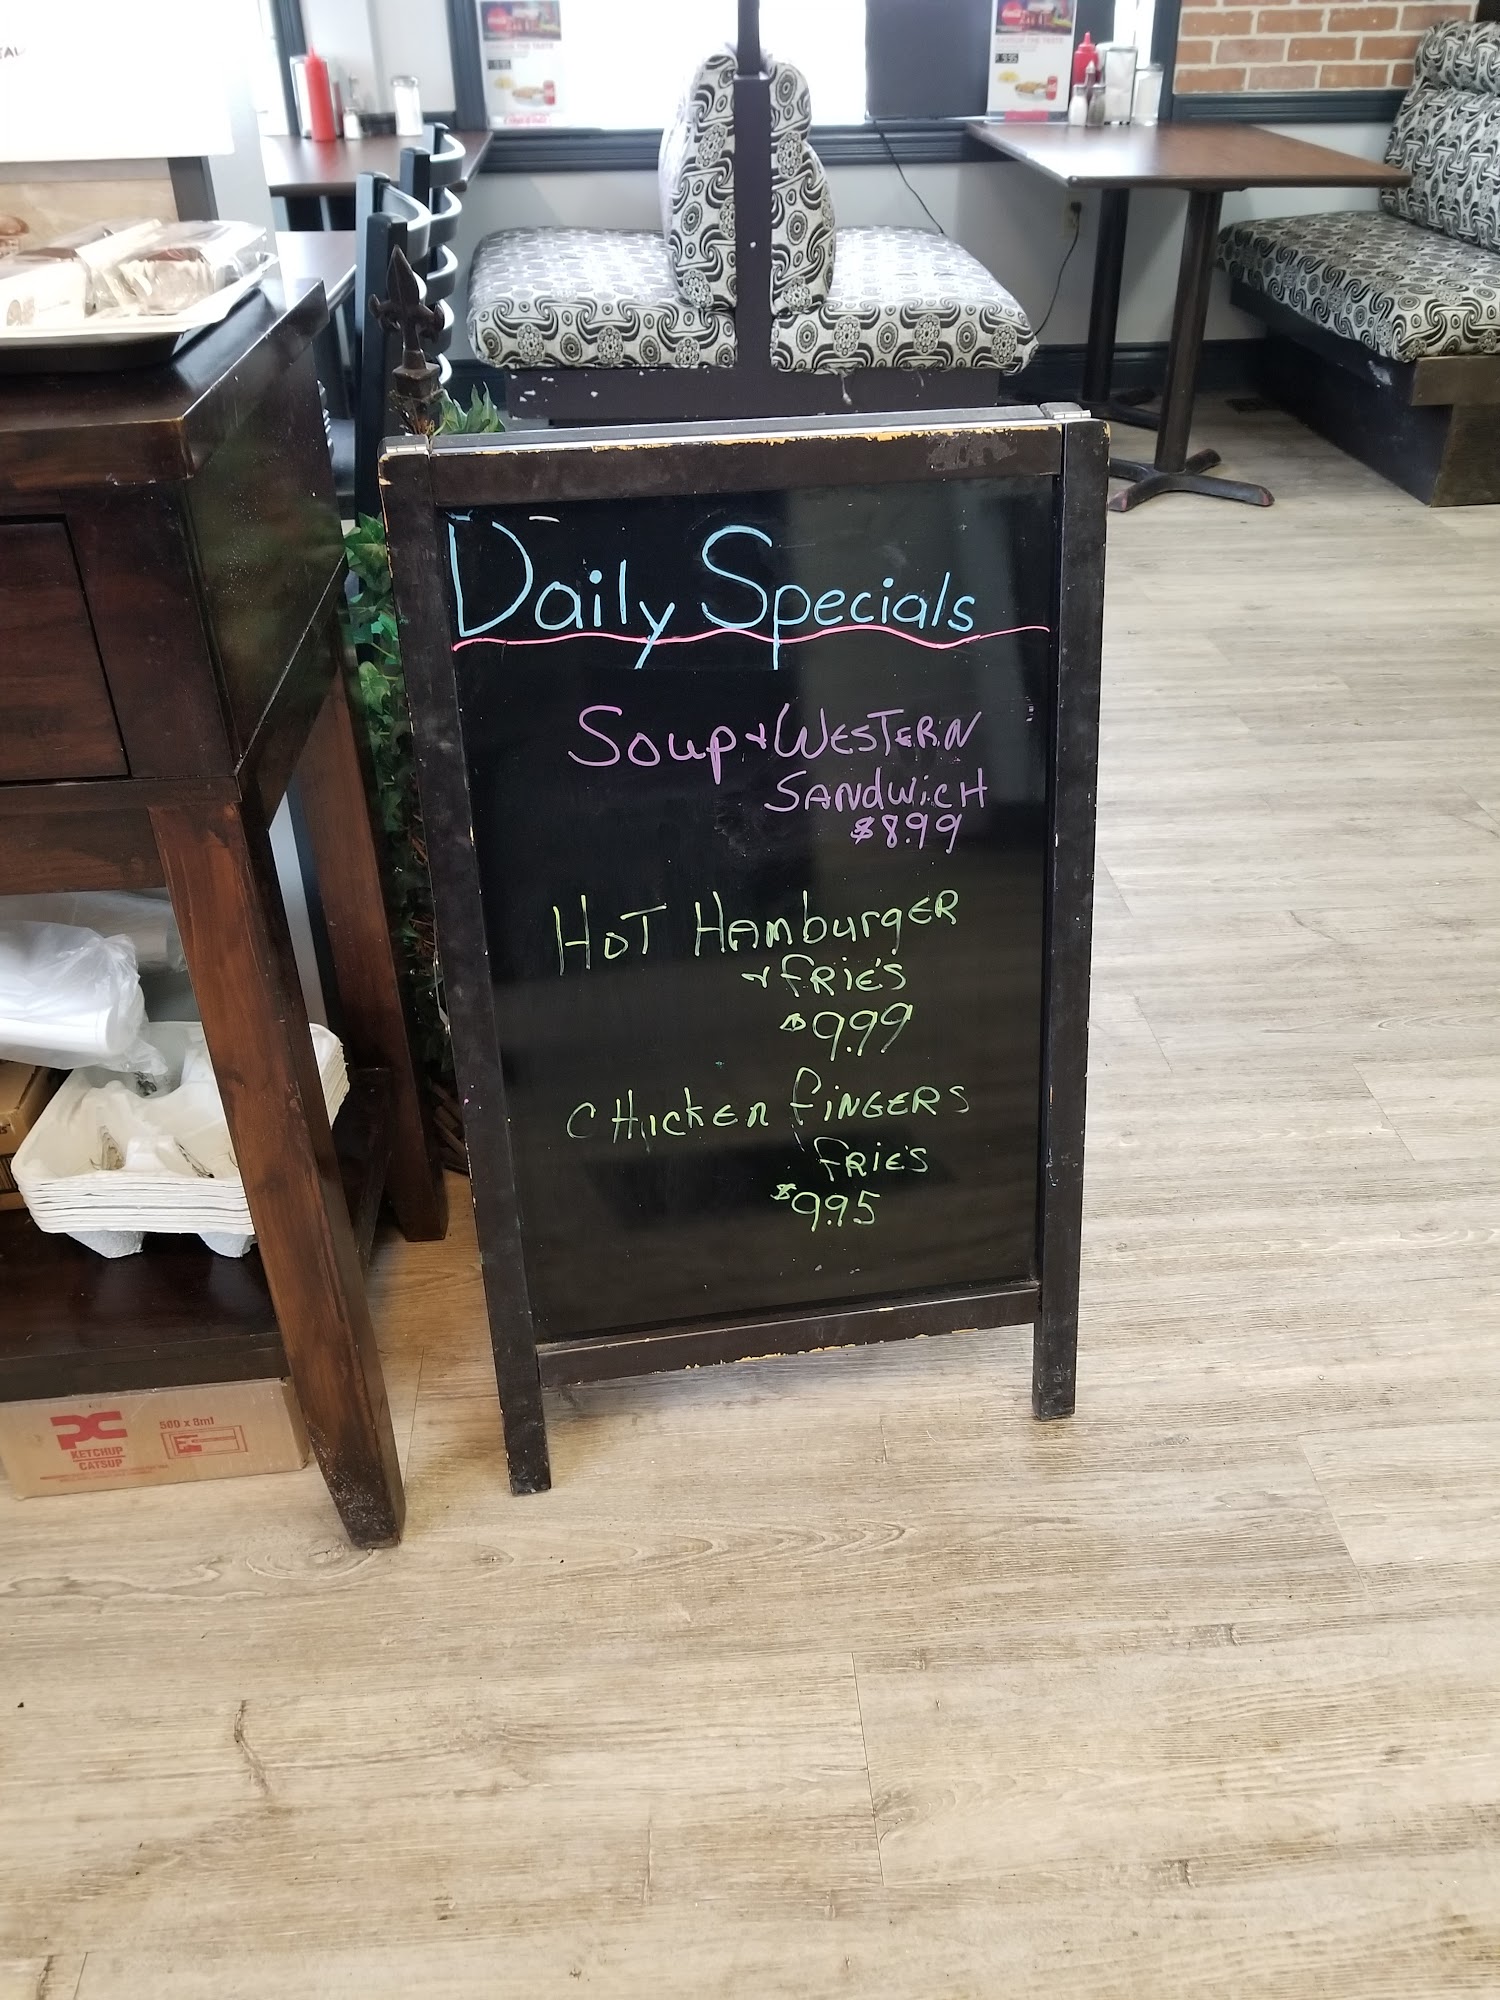 Daily Specials
Soup & WESTERN
SANDwicH
$8.99
HOT HAmburgER
& fRIE'S
$9.99
CHickEn fiNGERS
fRIE'S
$9.95
PC
KETCHUP
CATSUP
500 x 8ml